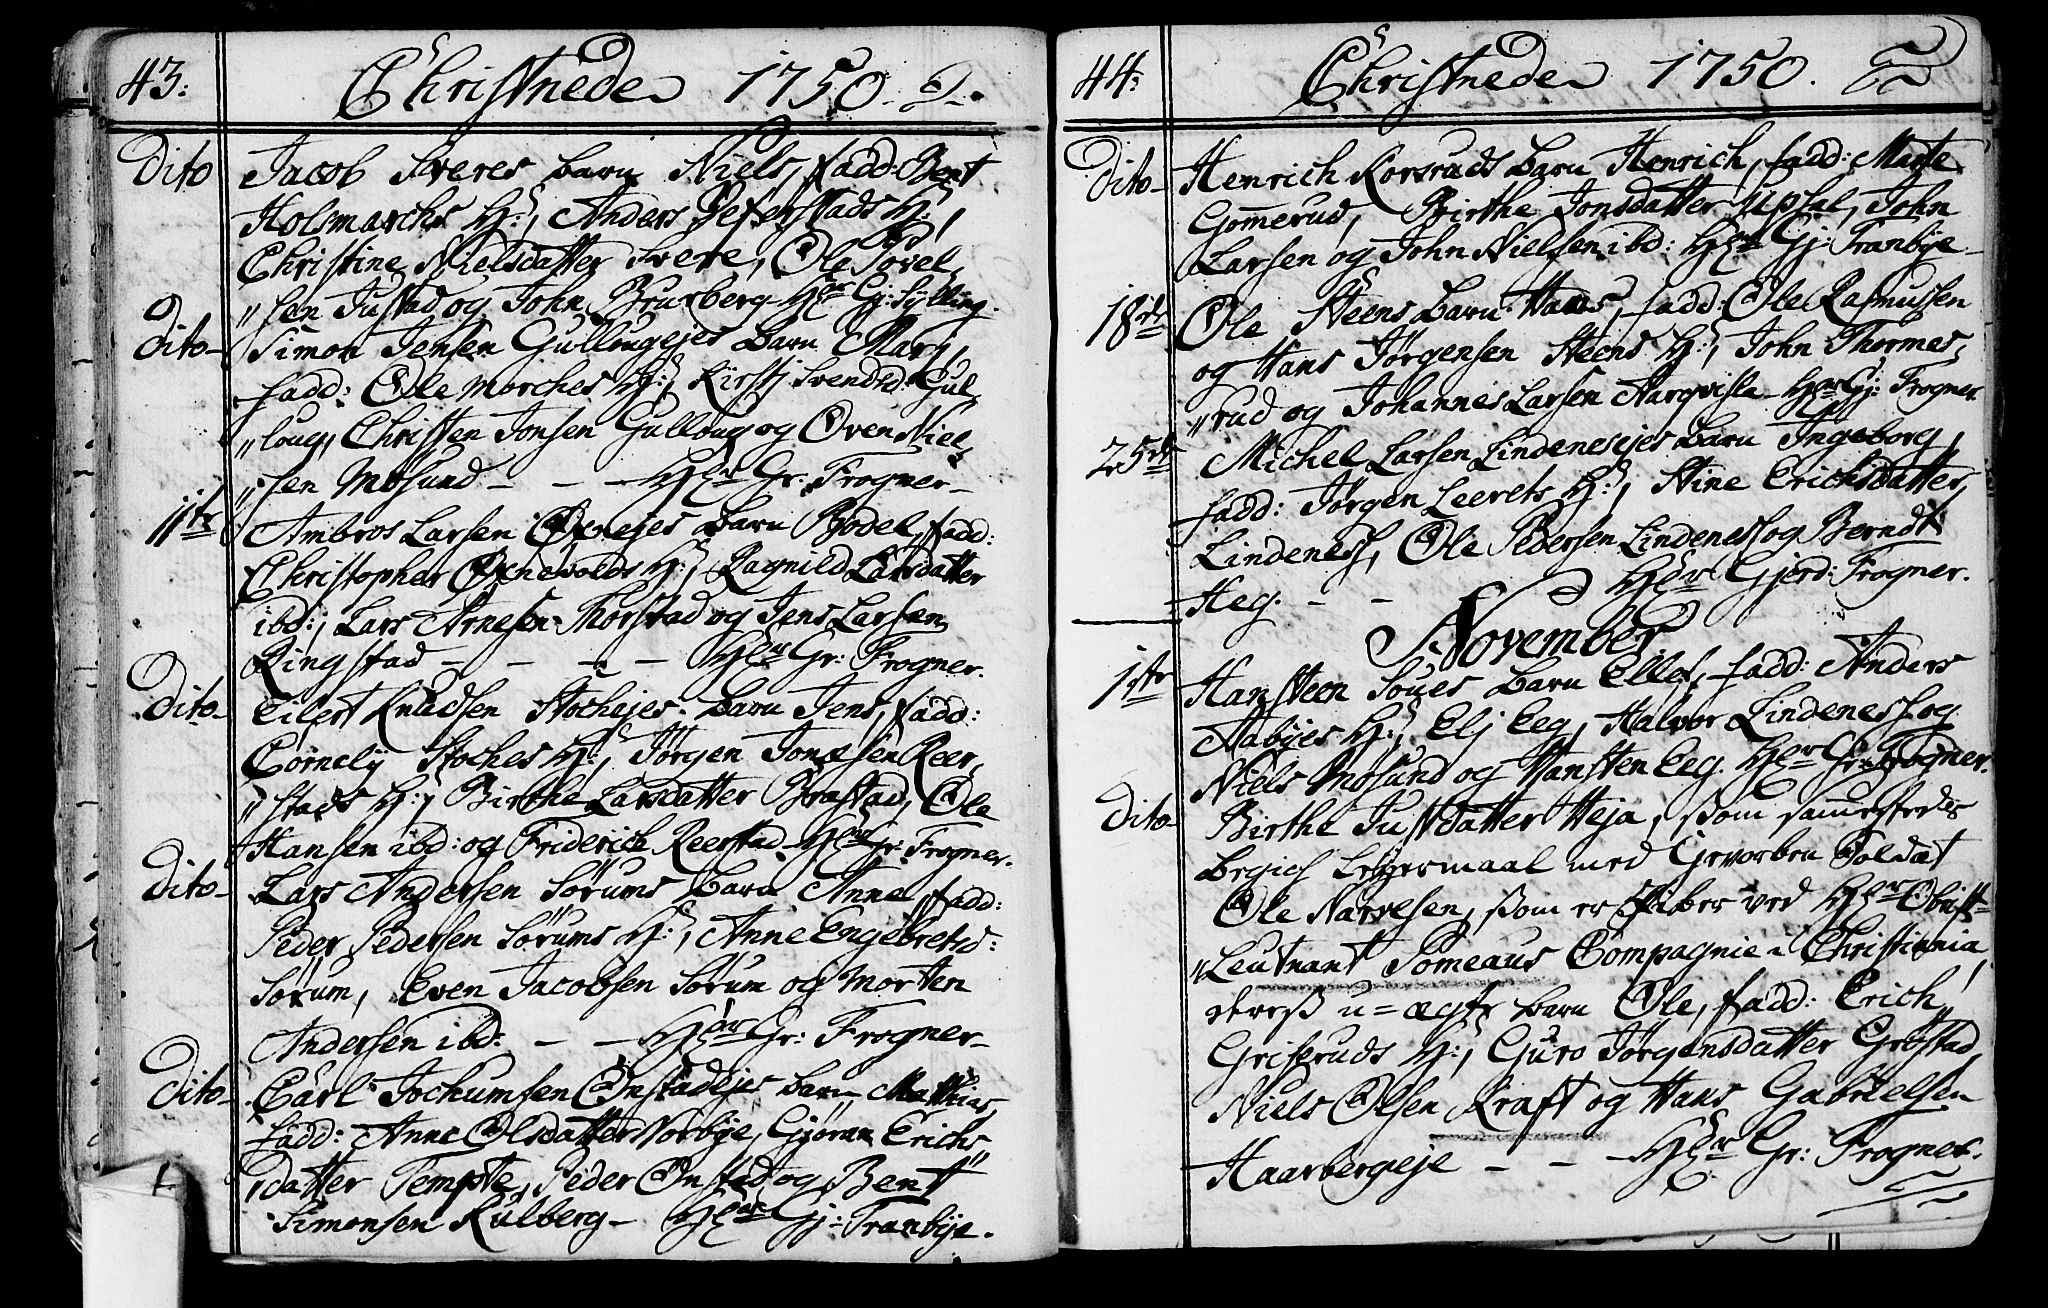 43:
Christnede 1750.
Dito Jacob Sveres barn Niels, fadd: Bent
Holsmarchs H:, Anders Peferstads H:,
Christine Nielsdatter Svere, Ole Povel
"sen Justad og John Brurberg Hr Gj: Sylling.
Dito- Simon Jensen Gullougejes barn Mari,
fadd: Ole Morches H:, Kirstj Svendsd: Gul
"loug, Christen Jonsen Gulloug og Oven Niel
"sen Mosund - - - Hr Gr: Frogner-
11te Ambros Larsen barn Bodel, fadd:
Christopher Ognevolds H:, Ragnild Larsdatter
ibd:, Lars Arnesen Thorstad og Jens Larsen
Ringstad - - - - Hr Gr: Frogner.
Dito- Eilert Knudsen Stochejes barn Jens, fadd:
Cornely Stoches H:, Jørgen Jonæsen Reer
"stads H:, Birthe Larsdatter Brastad, Ole
Hansen ibd: og Friderich Reerstad. Hr Gr: Frogner.
Dito- Lars Andersen Sørums barn Anne, fadd:
Peder Pedersen Sørums H:, Anne Engebretsd:
Sørum, Even Jacobsen Sørum og Morten
Andersen ibd: - - Hr Gr: Frogner-
Dito- Carl Jochumsen Onstadejes barn Mathias,
fadd: Anne Olsdatter Norbye, Gjøran Erichs
"datter Tempte, Peder Onstad og Bent
Simonsen Kulberg- Hr Gj: Tranbye.
44:
Christnede 1750.
Dito- Henrich Korsruds barn Henrich, fadd: Marte
Gommerud, Birthe Jonsdatter Upsal, John
Larsen og John Nielsen ibd: Hr Gj: Tranbye-
18de Ole Steens barn Hans, fadd: Ole Rasmussen
og Hans Jørgensen Steens H:, John Thormes
"rud og Johannes Larsen Aarqvisla- Hr Gj: Frogner.
25de Michel Larsen Lindenesejes barn Ingeborg,
fadd: Jørgen Leerets H:, Stine Erichsdatter,
Lindenes, Ole Pedersen Lindenes og Berndt
Heg. - - Hr Gjerd: Frogner.
November
1ste Hansteen Soues barn Ellef, fadd: Anders
Aabyes H:, Elj Eeg, Halvor Lindeness og
Niels Mosund og Hansten Eeg. Hr Gr: Frogner.
Dito- Birthe Justdatter Heja, som sammesteds
begich Leyermaal med Gevorben Soldat
Ole Narvesen, som er Piber ved Hr Obrist-
"Leutnant Someaus Compagnie i Christiania,
deres u=ægte barn Ole, fadd: Erich
Griseruds H:, Guro Jørgensdatter Grøstad,
Niels Olsen Kraft og Hans Gabrielsen
Haarbergeje - - Hr Gr: Frogner.